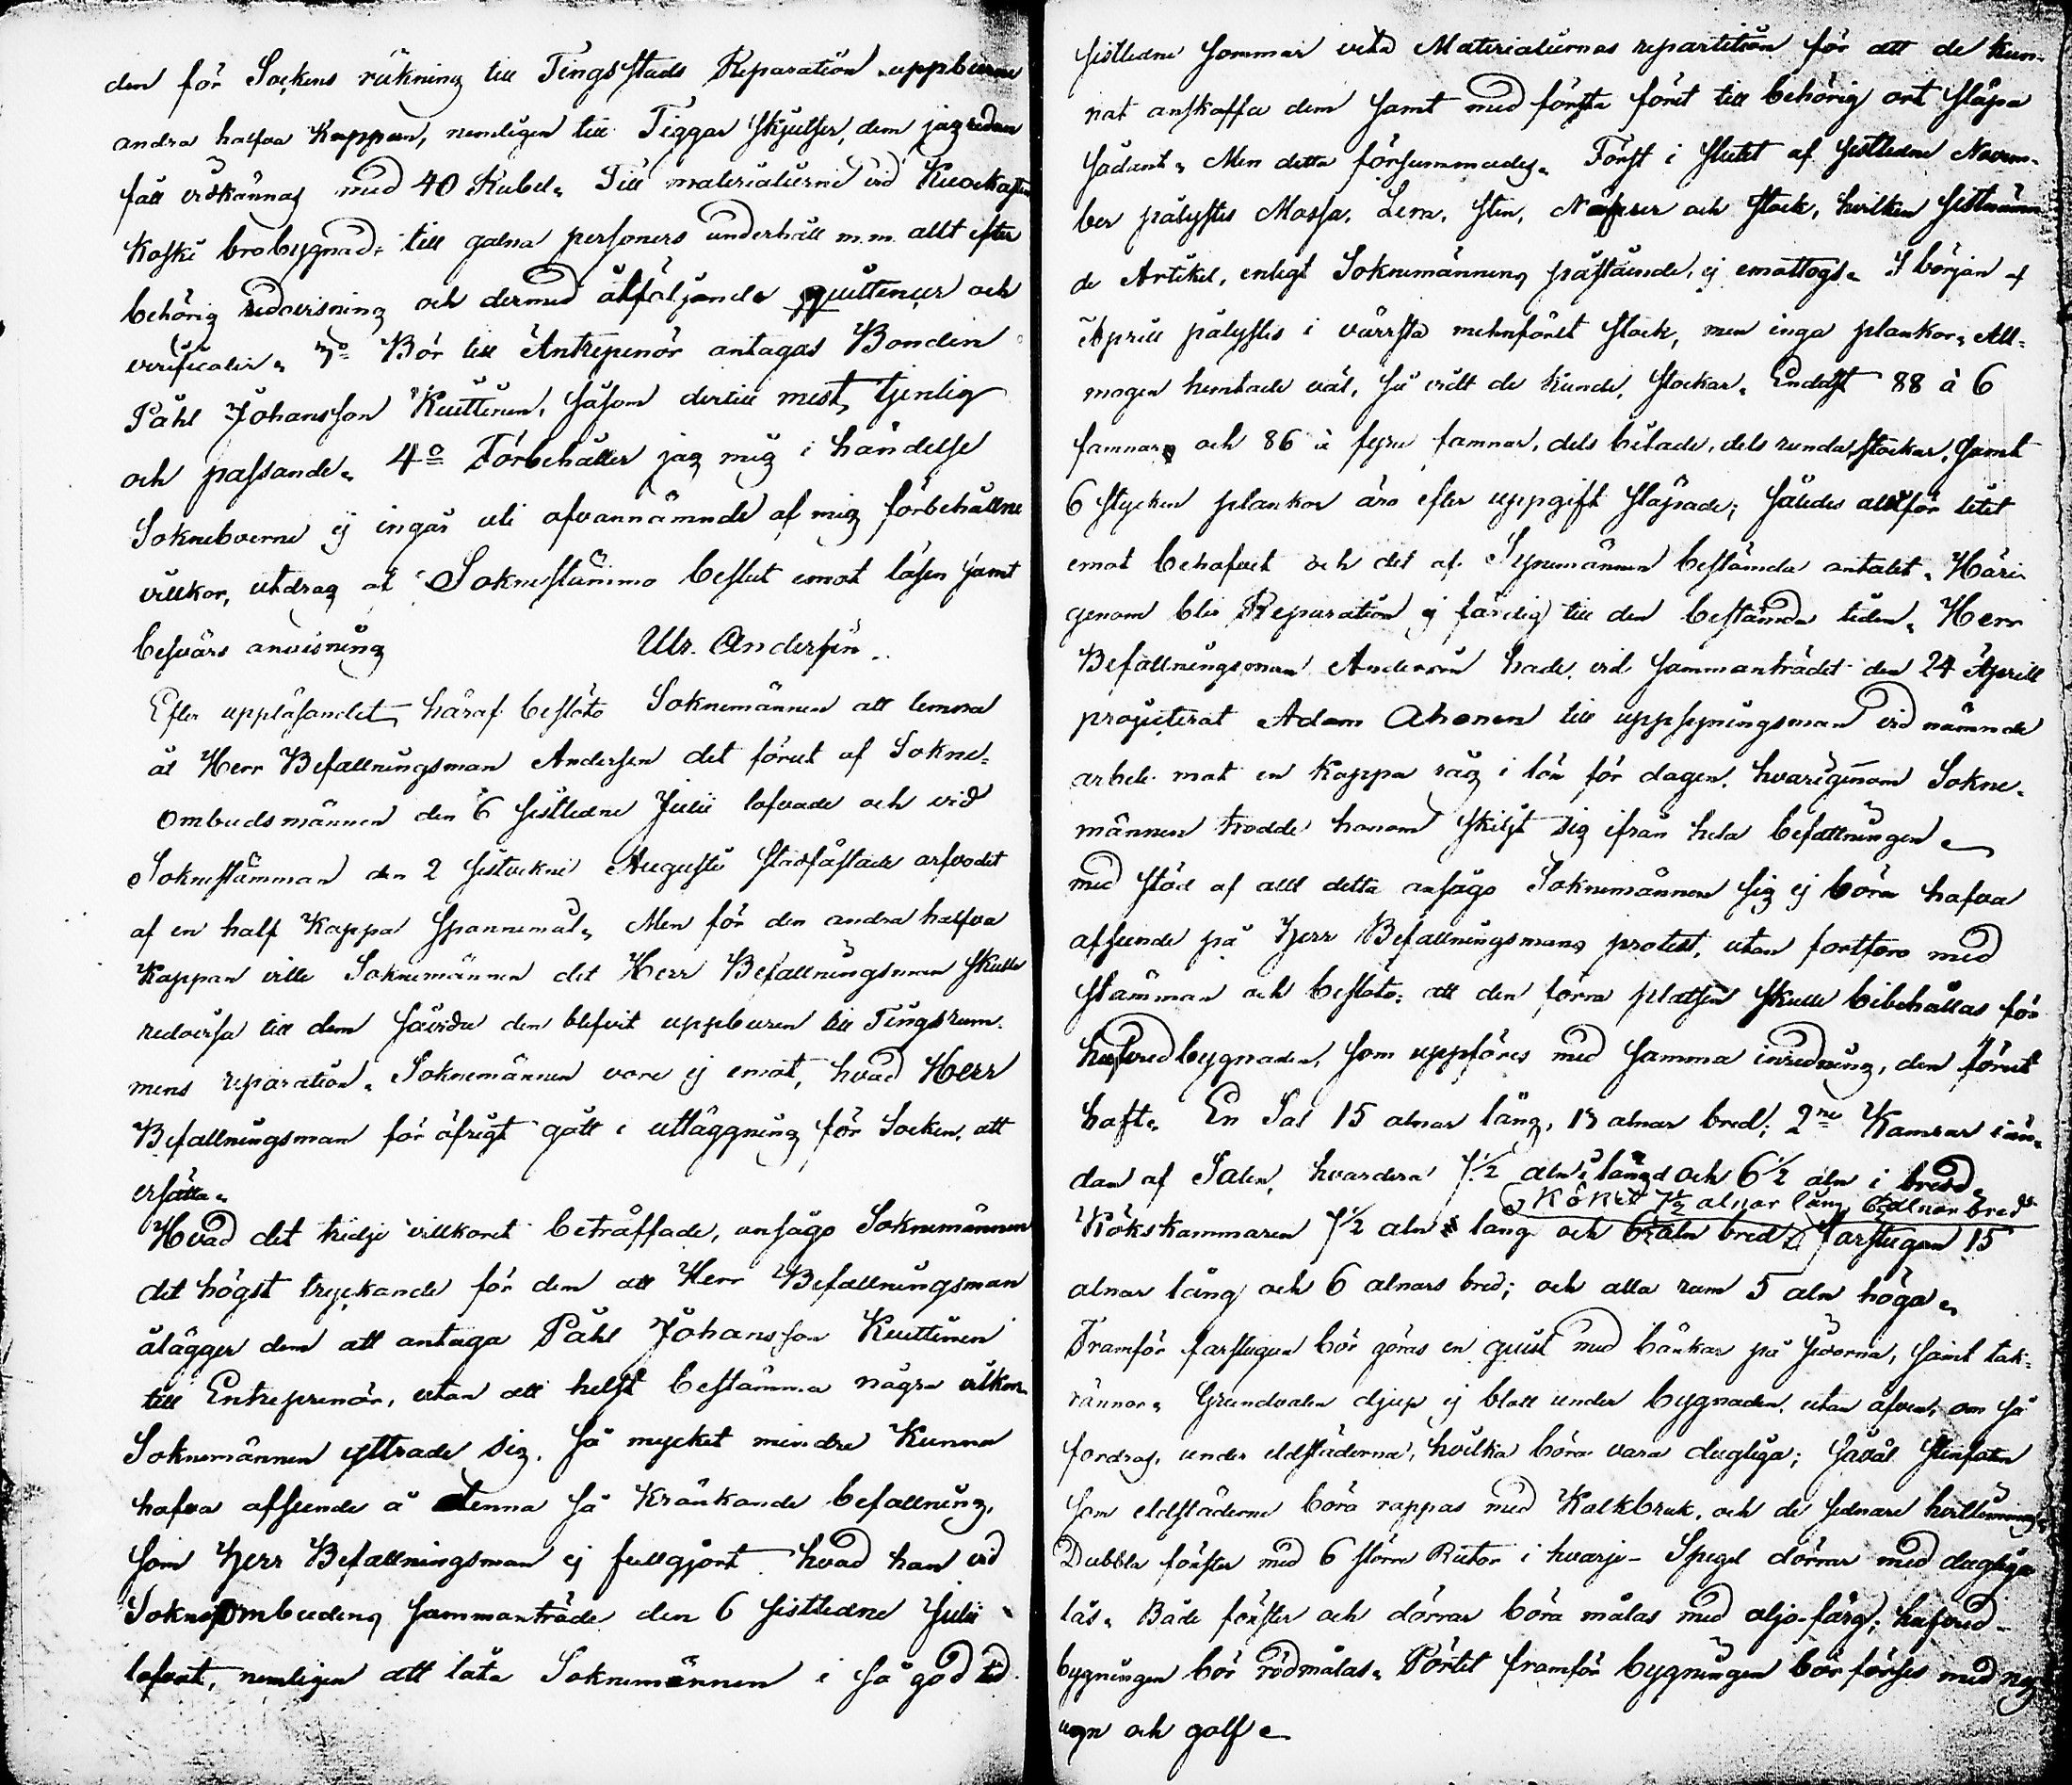 den för Sockens räkning till Tingsstads Reparation uppburne
andra halfva Kappan, nemligen till Tiggar skjutser, dem jag redan
fått vidkännas med 40 Rubel. Till materialierne vid
Koski brobygnad, till galna personers underhåll m.m. allt efter
behörig redovisning och dermed åtföljande quittencer och
verificatier. 3o Bör till Antrepenör antagas Bonden
Påhl Johansson Kuittinen, såsom dertill mest tjenlig
och passande. 4o Förbehåller jag mig i händelse
Sokneboerne ej ingår uti ofvannämnde af mig förbehållne
villkor, utdrag af Soknestämmo beslut emot lösen samt
besvärs anvisning Ulr. Andersin.
Efter uppläsandet häraf beslöto Soknemännen att lemna
åt Herr Befallningsman Andersin det förut af Sokne-
ombudsmännen den 6 sistledne Julii lofvade och vid
Soknestämman den 2 sistvekne Augusti stadfästade arfvodet
af en half Kappa Spannemål. Men för den andra halfva
Kappan ville Soknemännen det Herr Befallningsman skulle
redovisa till dem såvida den blifvit uppburen till Tingsrum-
mens reparation. Soknemännen vore ej emot, hvad Herr
Befallningsman för öfrigt gått i utläggning för Socken, att
ersätta.
Hvad det tridje villkoret beträffade, ansågo Soknemännen
det högst tryckande för dem att Herr Befallningsman
ålägger dem att antaga Påhl Johansson Kuittinen
till Entreprenör, utan att helst bestämma några vilkor.
Soknemännen yttrade sig, så mycket mindre kunna
hafva afseende å denna så kränkande befallning,
som Herr Befallningsman ej fullgjort hvad han vid
Sokneombudens sammanträde den 6 sistledne Julii
lofvat, nemligen att låta Soknemännen i så god tid
sistledne sommar veta Materialiernas repartition för att de kun-
nat anskaffa dem samt med första föret till behörig ort släpa
sådant. Men detta försummades. Först i slutet af sistledne Novem-
ber pålystes Mossa, Lera, sten, Näfver och stock, hvilken sistnämn-
de Artikel, enligt Soknemännens påstående, ej emottogs. I början af
Aprill pålystes i värrsta menföret stock, men inga plankor. All-
mogen hemtade väl, så vidt de kunde, stockar. Endast 88 à 6
famnar och 86 à fyra famnar, dels bilade, dels runda stockar, samt
6 stycken plankor äro efter uppgift släpade; således alltför litet
emot behofvet och det af Synemännen bestämda antalet. Häri-
genom blir Reparation ej färdig till den bestämda tiden. Herr
Befallningsman Andersin hade vid sammanträdet den 24 Aprill
projecterat Adam Ahonen till uppsyningsman vid nämnde
arbete mot en Kappa råg i lön för dagen, hvarigenom Sokne-
männen trodde honom skiljt sig ifrån hela befattningen
med stöd af allt detta ansågo Soknemännen sig ej böra hafva
afseende på Herr Befallningsmans protest, utan fortforo med
stämman och beslöto: att den förra platsen skulle bibehållas för
hufvudbygnaden, som uppföres med samma inredning, den förut
haft. En Sal 15 alnar lång, 13 alnar bred; 2ne Kamrar i än-
dan af Salen, hvardera 7 1/2 aln i längd och 6 1/2 aln i bredd
Köket 7 1/2 alnar lång 6 alnar bred
Kökskammaren 7 1/2 aln lång och 6 1/2 aln bred Farstugan 15
alnar lång och 6 alnars bred; och alla rum 5 aln höga.
Framför farstugan bör göras en quist med bänkar på sidorna, samt tak-
rännor. Grundvalen djup ej blott under bygnaden, utan äfven, om så
fordras, under eldstäderna, hvilka böra vara dugliga; såväl stenfoten
som eldstäderne böra rappas med Kalkbruk, och de sednare hvitlimmas
Dubbla fönster med 6 större Rutor i hvarje - Spegel dörrar med dugliga
lås. Både fönster och dörrar böra målas med oljo-färg; hufvud-
bygningen bör rödmålas. Pörtet framför bygningen bör förses med ny
ugn och golf